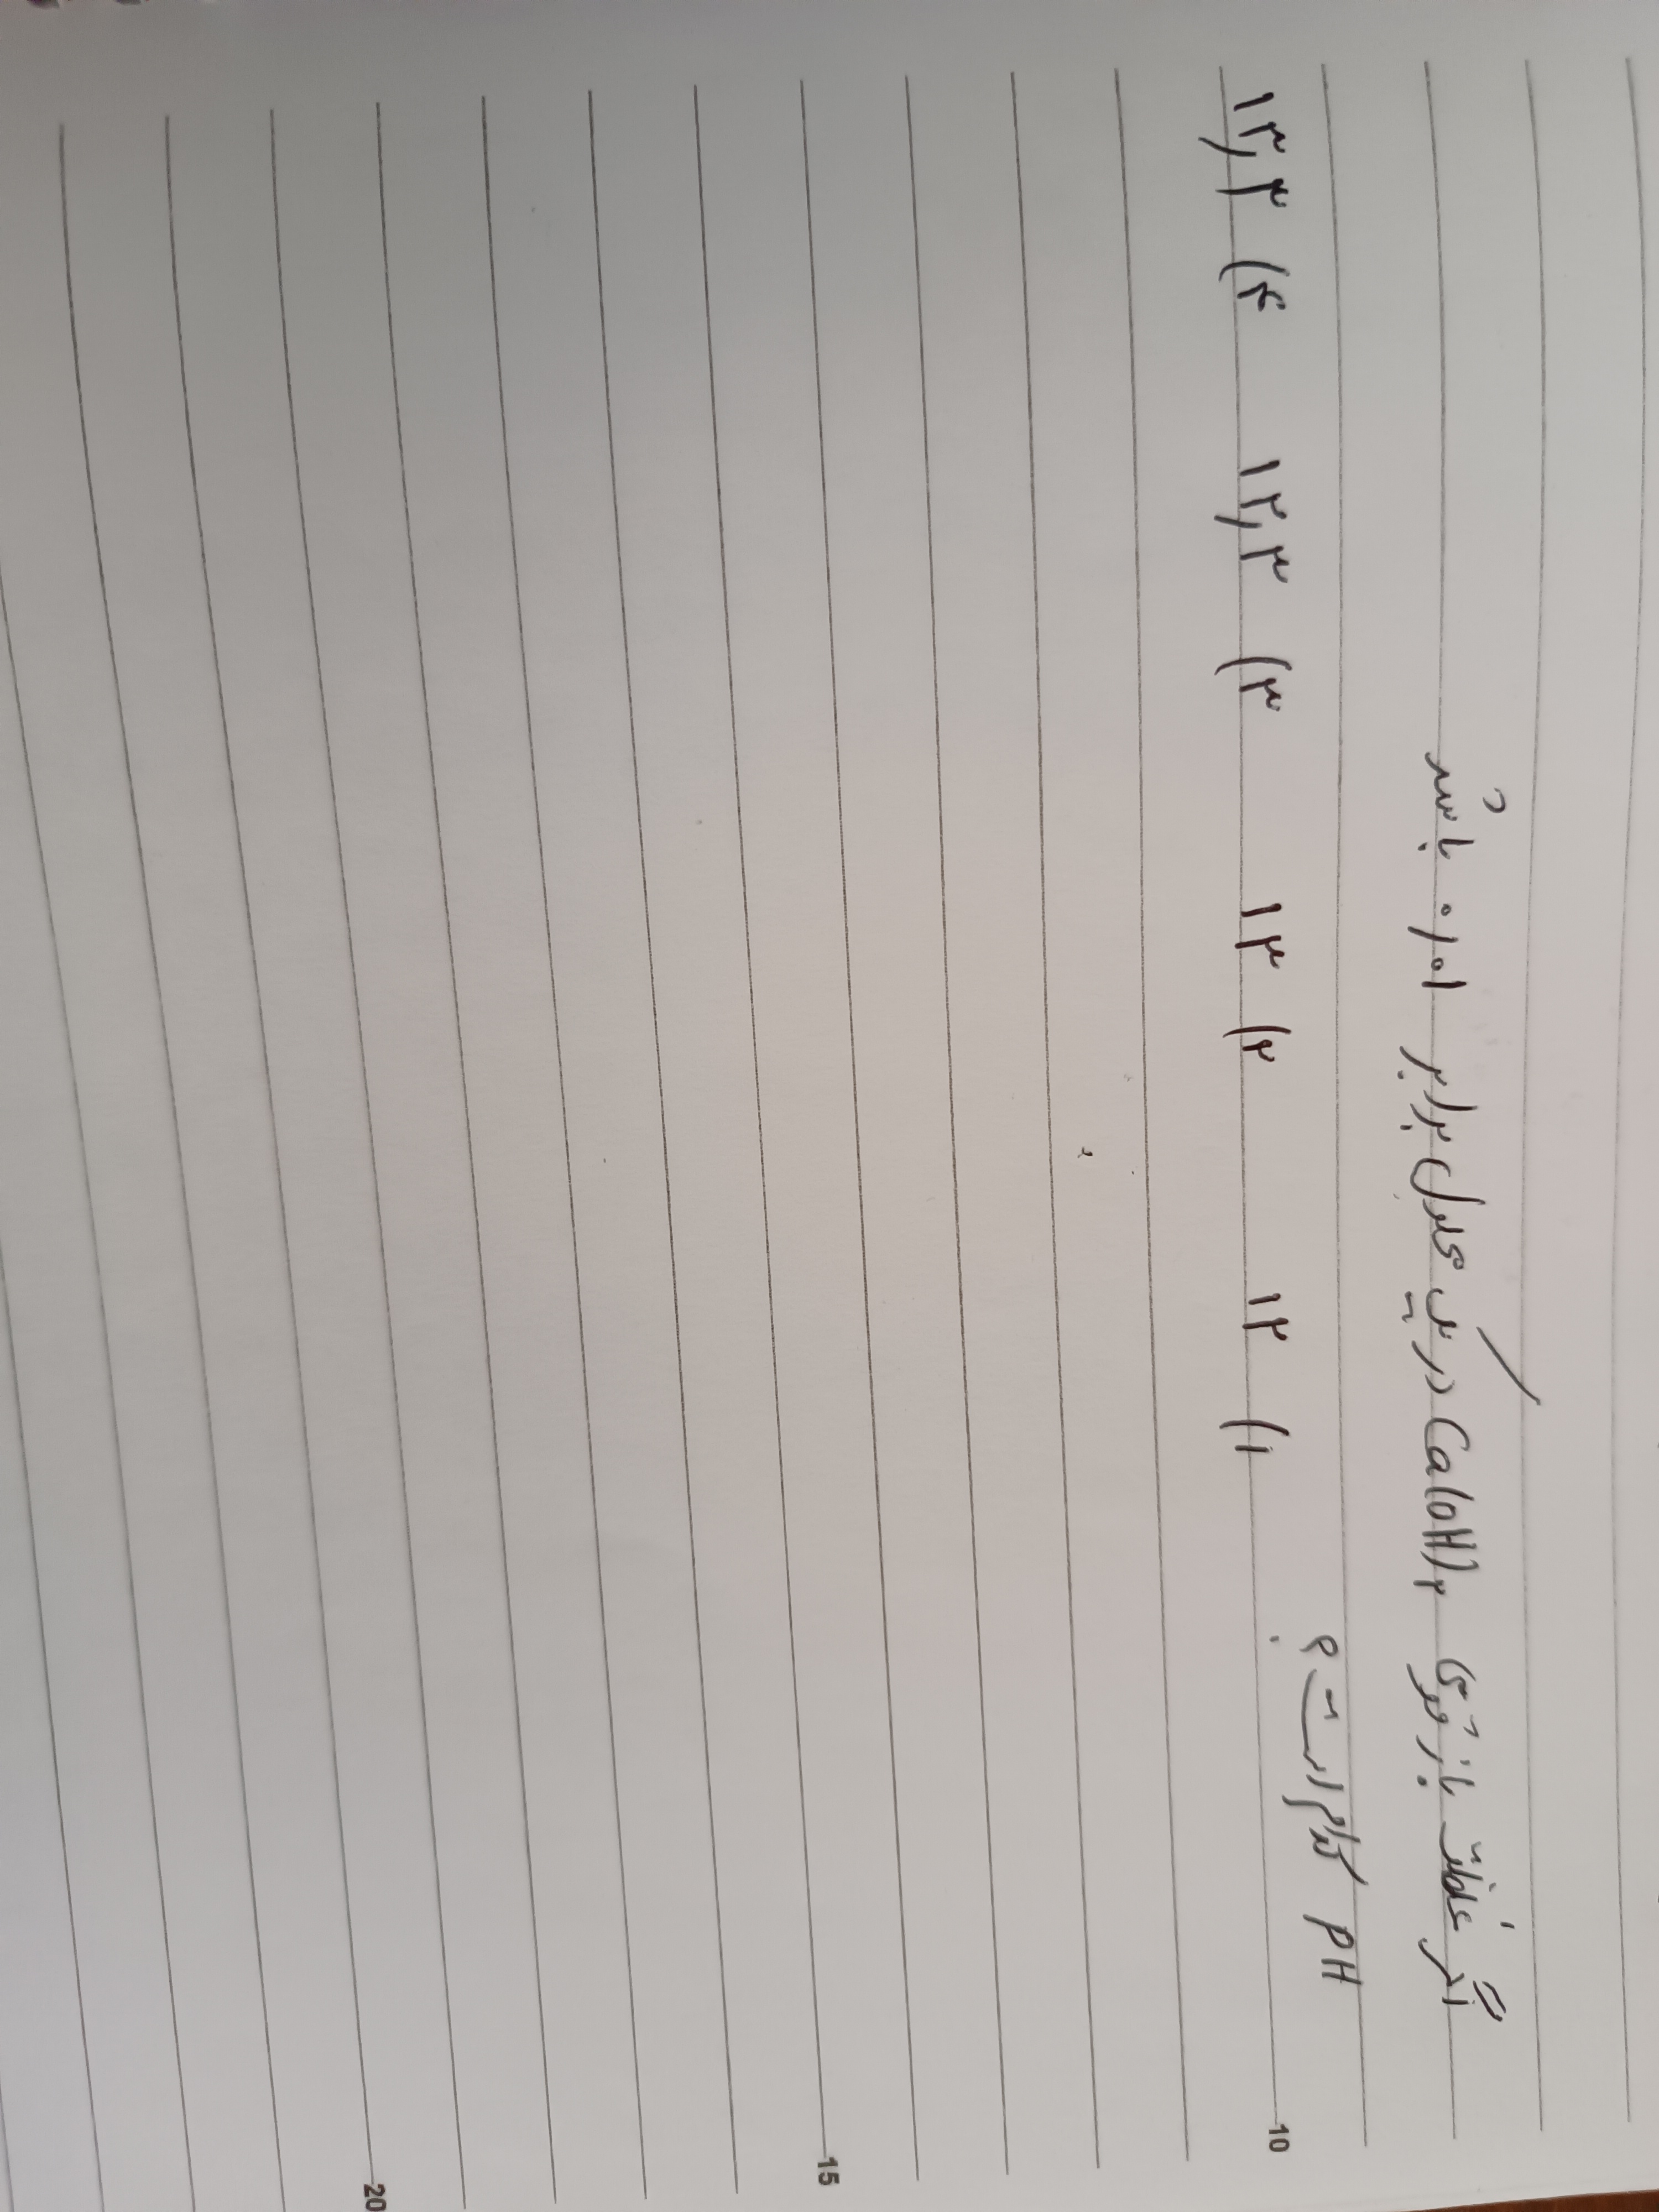 اگر غلظت باز قوی Ca(OH)۲ در یک محلول برابر ۰,۰۱ باشد
pH کدام است؟
۱) ۱۲ ۲) ۱۳ ۳) ۱۲,۳ ۴) ۱۳,۳
10
15
20